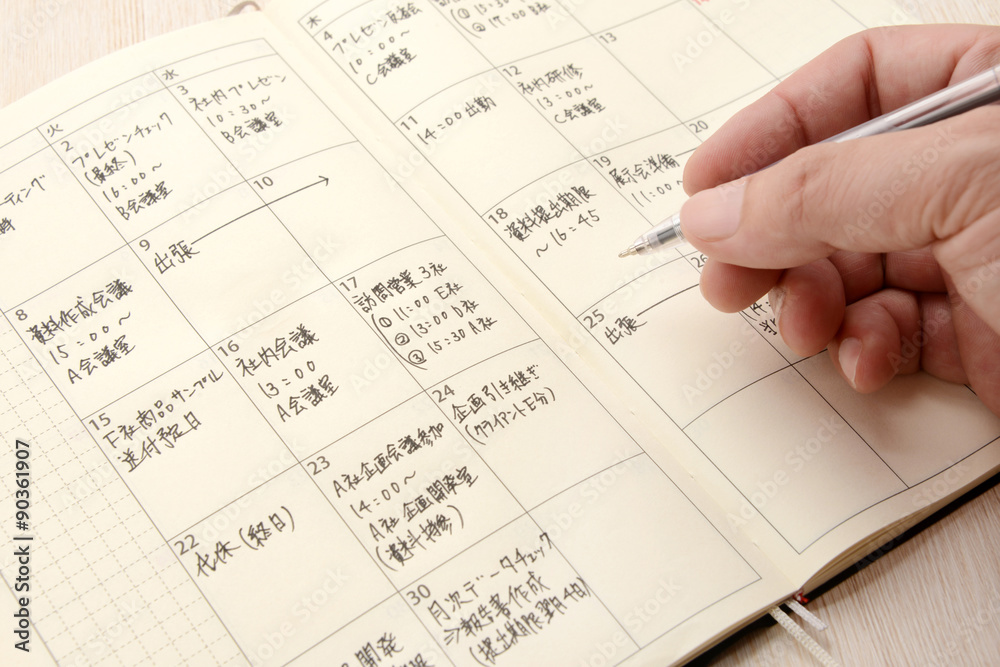 火
水
木
ティング
時
2
プレゼンチェック
(最終)
16:00~
B会議室
3
社内プレゼン
10:30~
B会議室
4
プレゼン反省会
10:00~
C会議室
8
資料作成会議
15:00~
A会議室
9
出張
10
11
14:00出勤
12
社内研修
13:00~
C会議室
13
15
F社商品サンプル
送付予定日
16
社内会議
13:00
A会議室
17
訪問営業3社
①11:00 E社
②13:00 D社
③15:30 A社
18
資料提出期限
~16:45
19
展示会準備
11:00~
20
22
代休(終日)
23
A社企画会議参加
14:00~
A社企画開発室
(資料持参)
24
企画引き継ぎ
(クライアントE分)
25
出張
26
30
月次データチェック
報告書作成
(提出期限翌月4日)
Adobe Stock | #90361907